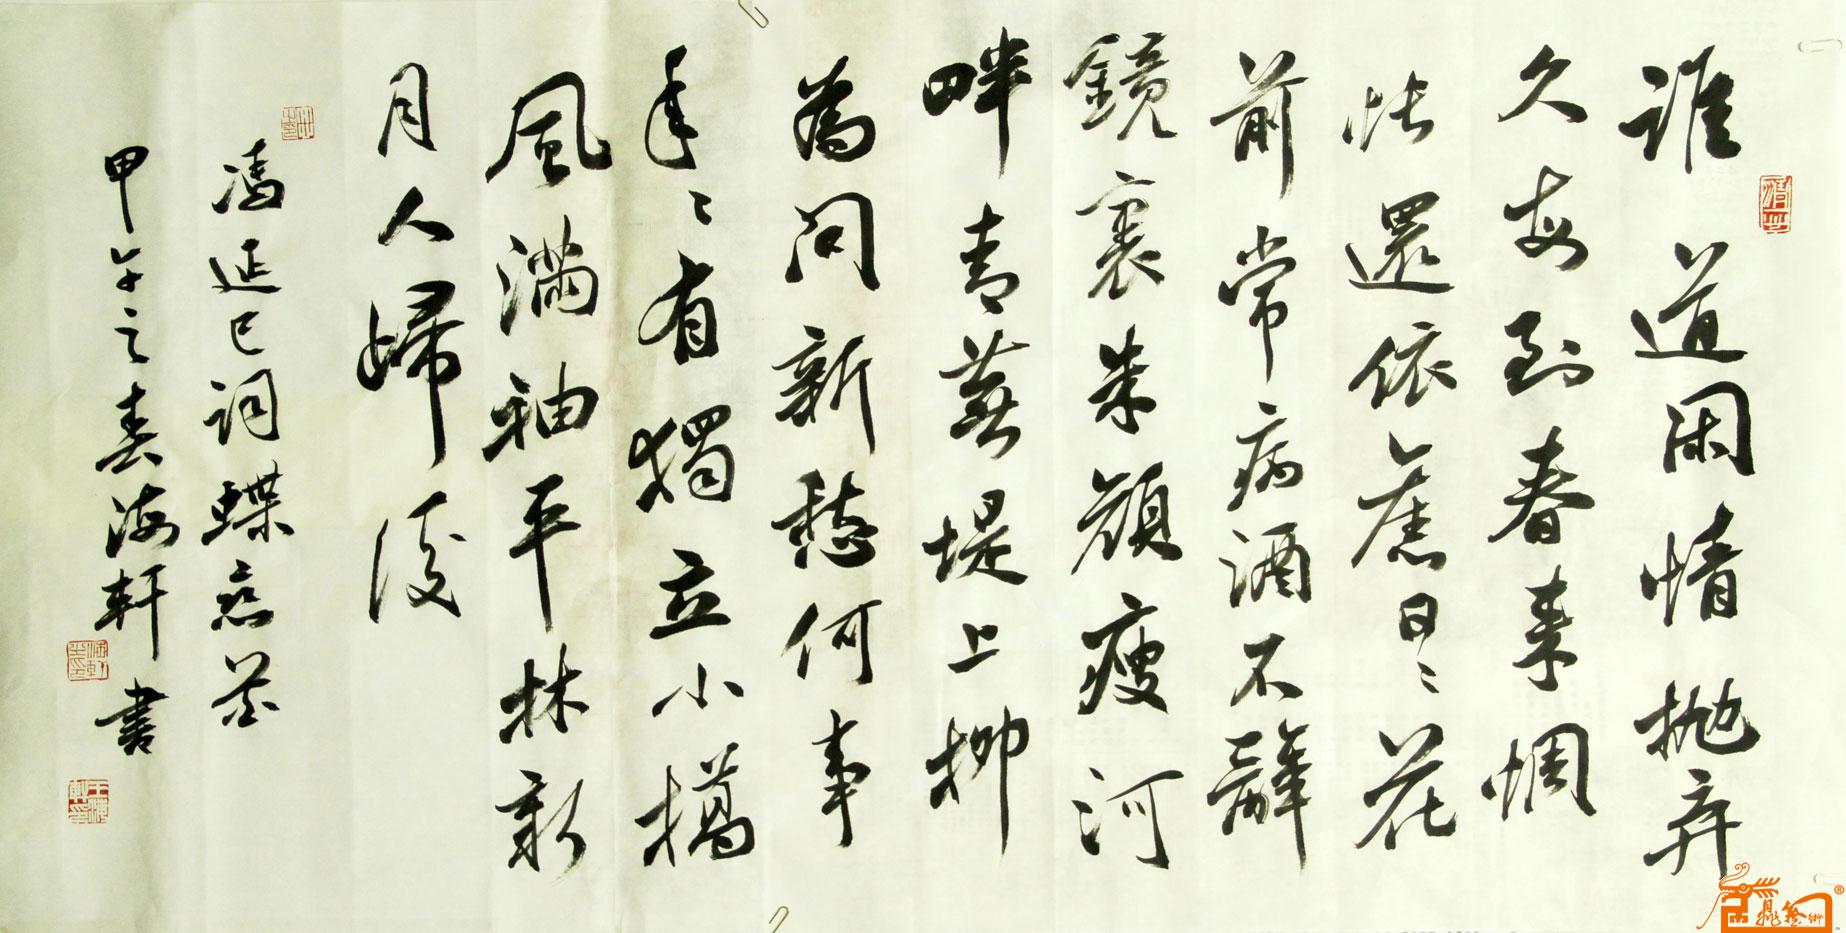 誰道闲情抛弃
久每到春来惆
怅還依舊日々花
前常病酒不辭
鏡裏朱顔瘦河
畔青蕪堤上柳
為问新愁何事
年々有獨立小橋
風满袖平林新
月人歸後
馮延巳词蝶恋花
甲午之春海軒書